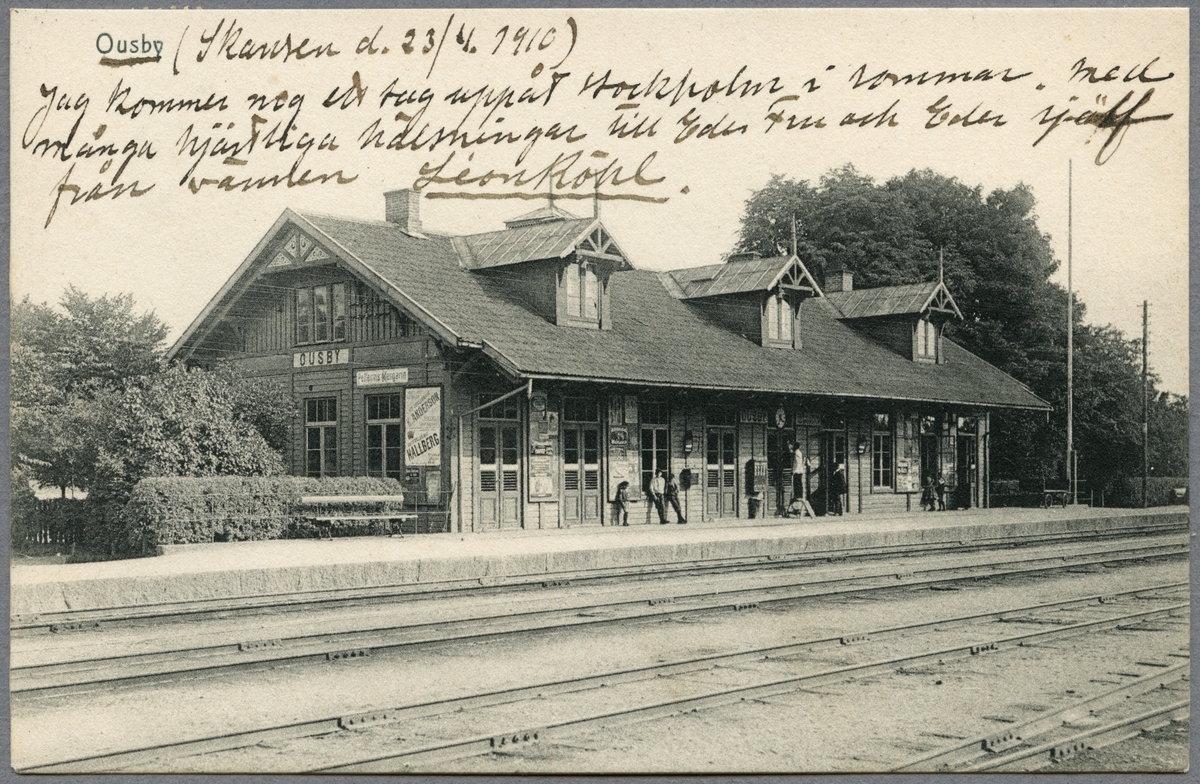 Ousby (Skansen d. 23/4. 1910)
Jag kommer nog ett tag uppåt Stockholm i sommar. Med
många hjärtliga hälsningar till Eder Fru och Eder själf
från vännen Léon Köhl.
OUSBY
Pellerins Margarin
ANDERSON
HALLBERG